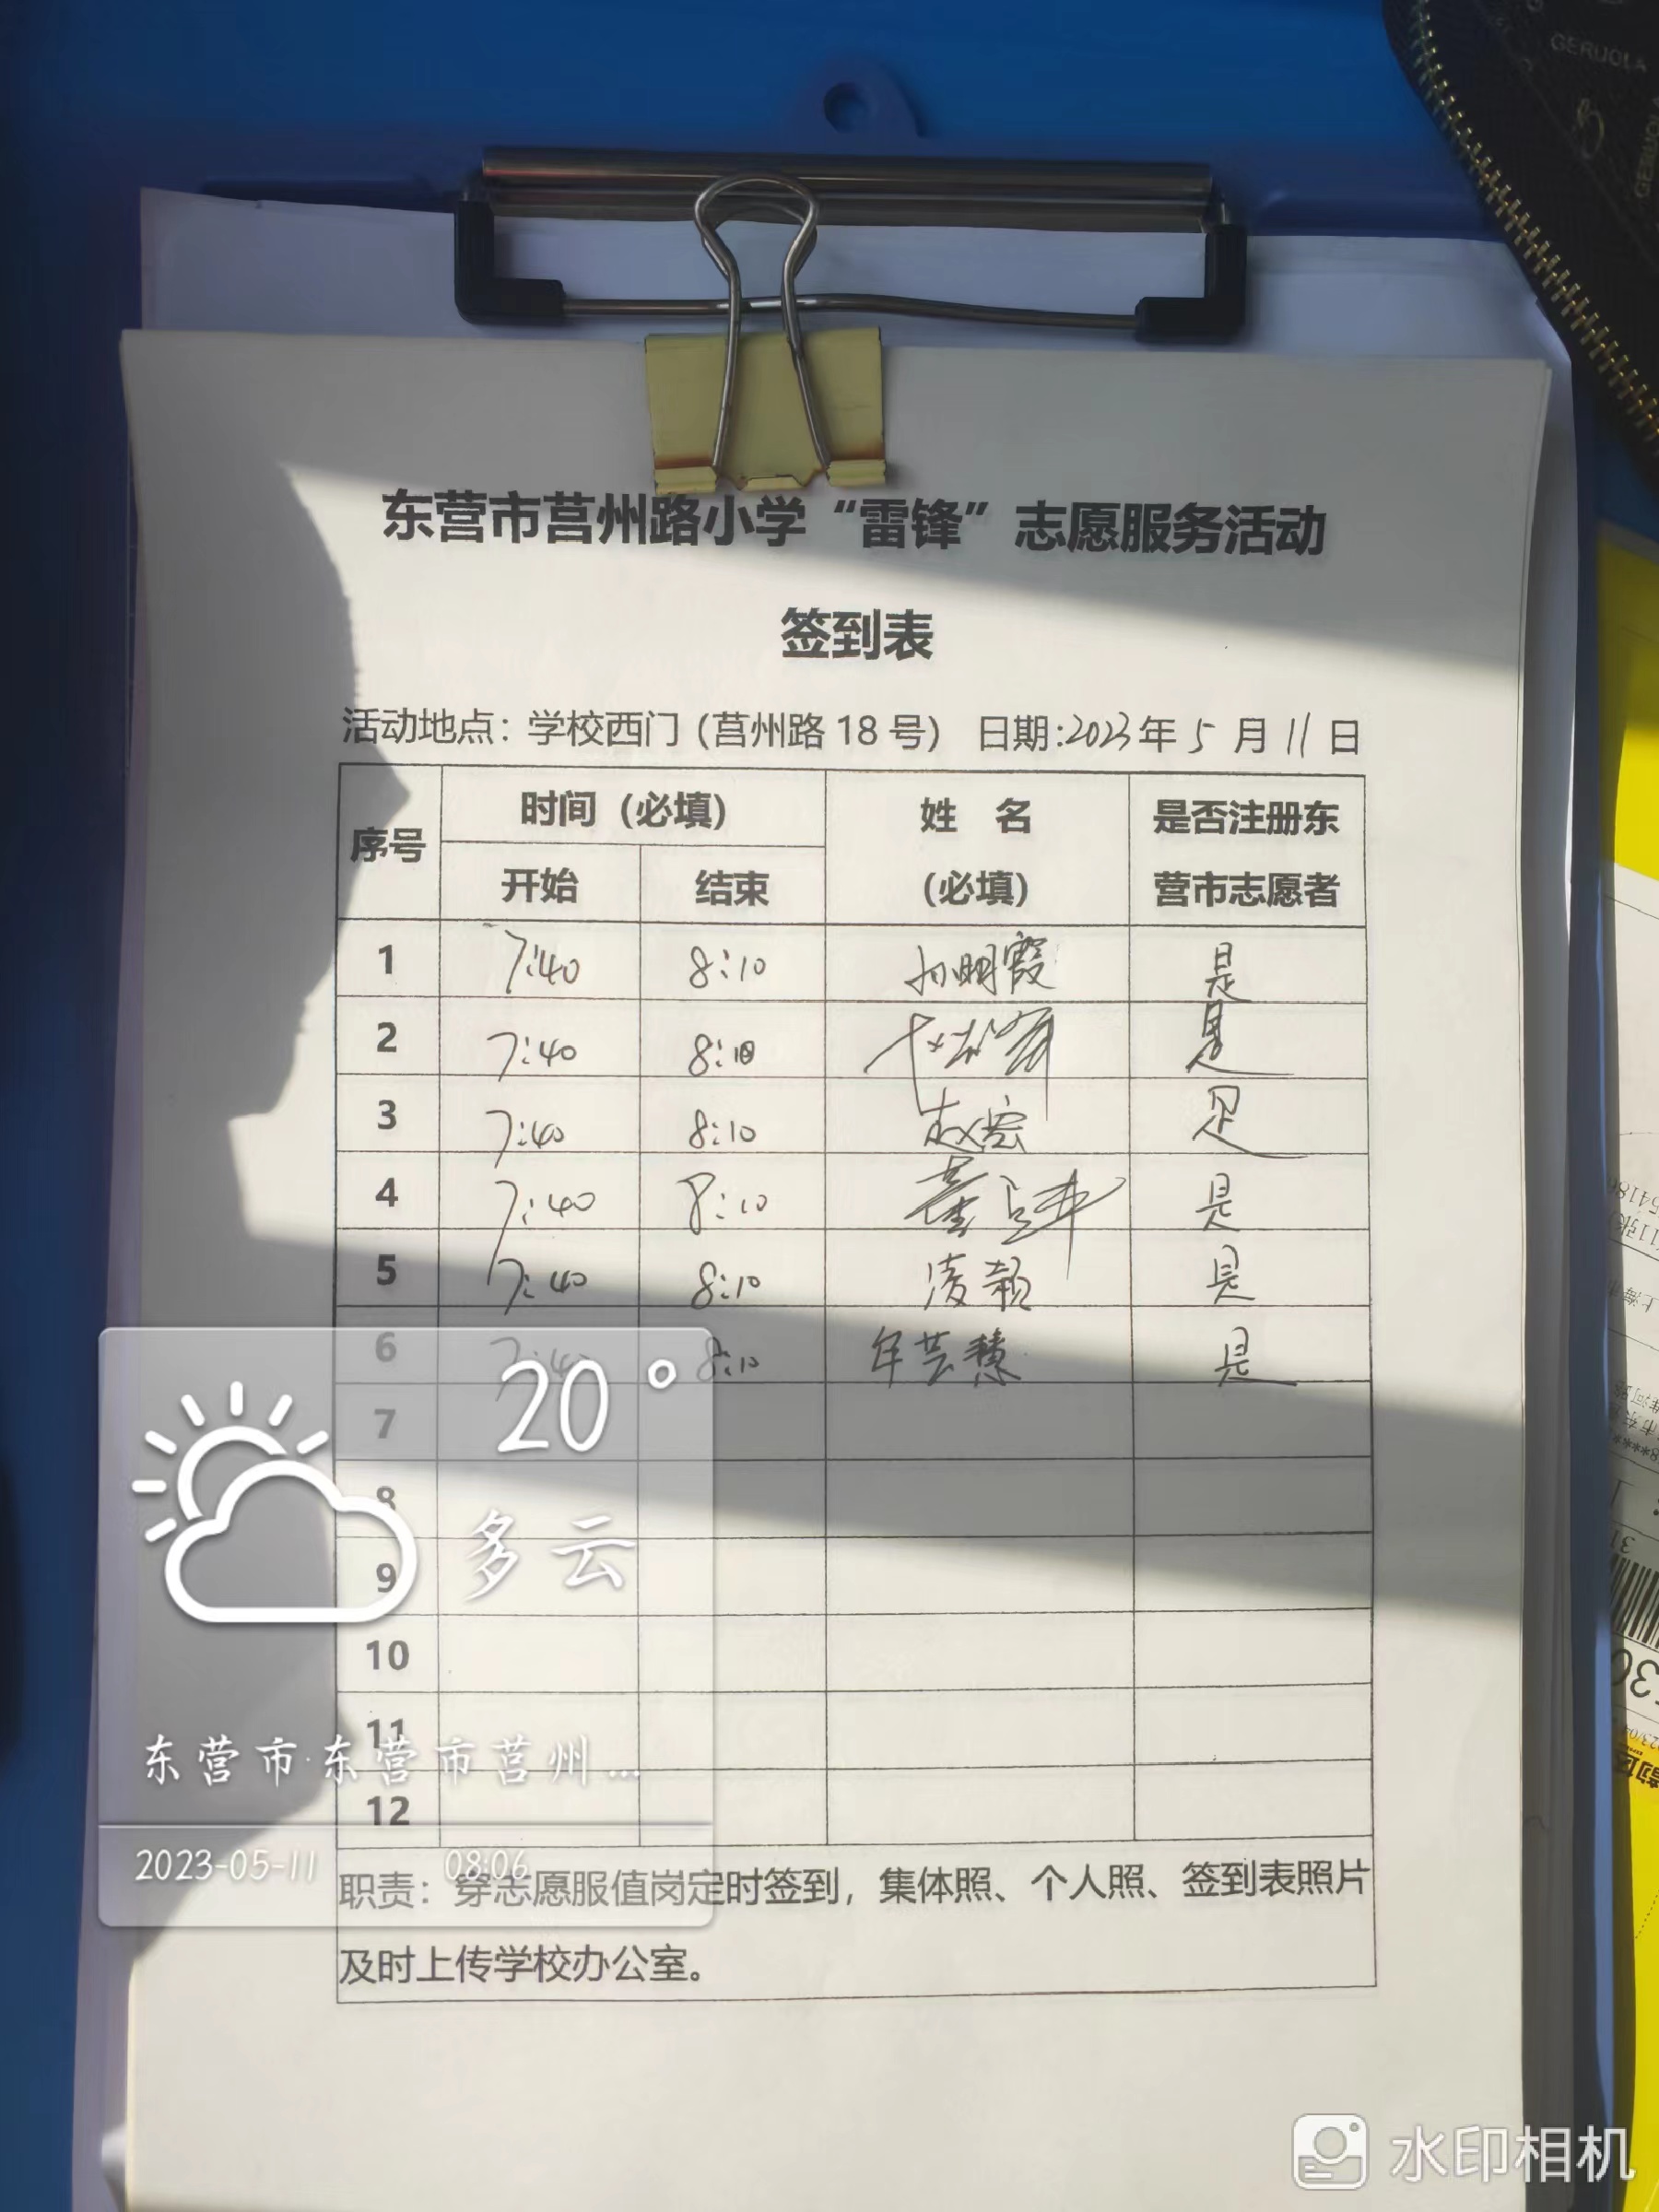 东营市莒州路小学“雷锋”志愿服务活动
签到表
活动地点：学校西门（莒州路 18 号） 日期:2023年 5 月 11 日
序号 时间（必填） 姓 名 是否注册东
开始 结束 （必填） 营市志愿者
1 7:40 8:10 孙明霞 是
2 7:40 8:10 是
3 7:40 8:10 赵宏 是
4 7:40 8:10 董 是
5 7:40 8:10 凌颖 是
6 7:40 8:10 年芸慧 是
7
8
9
10
11
12
职责：穿志愿服值岗定时签到，集体照、个人照、签到表照片
及时上传学校办公室。
20°
多云
东营市·东营市莒州...
2023-05-11 08:06
水印相机
GERUOLA